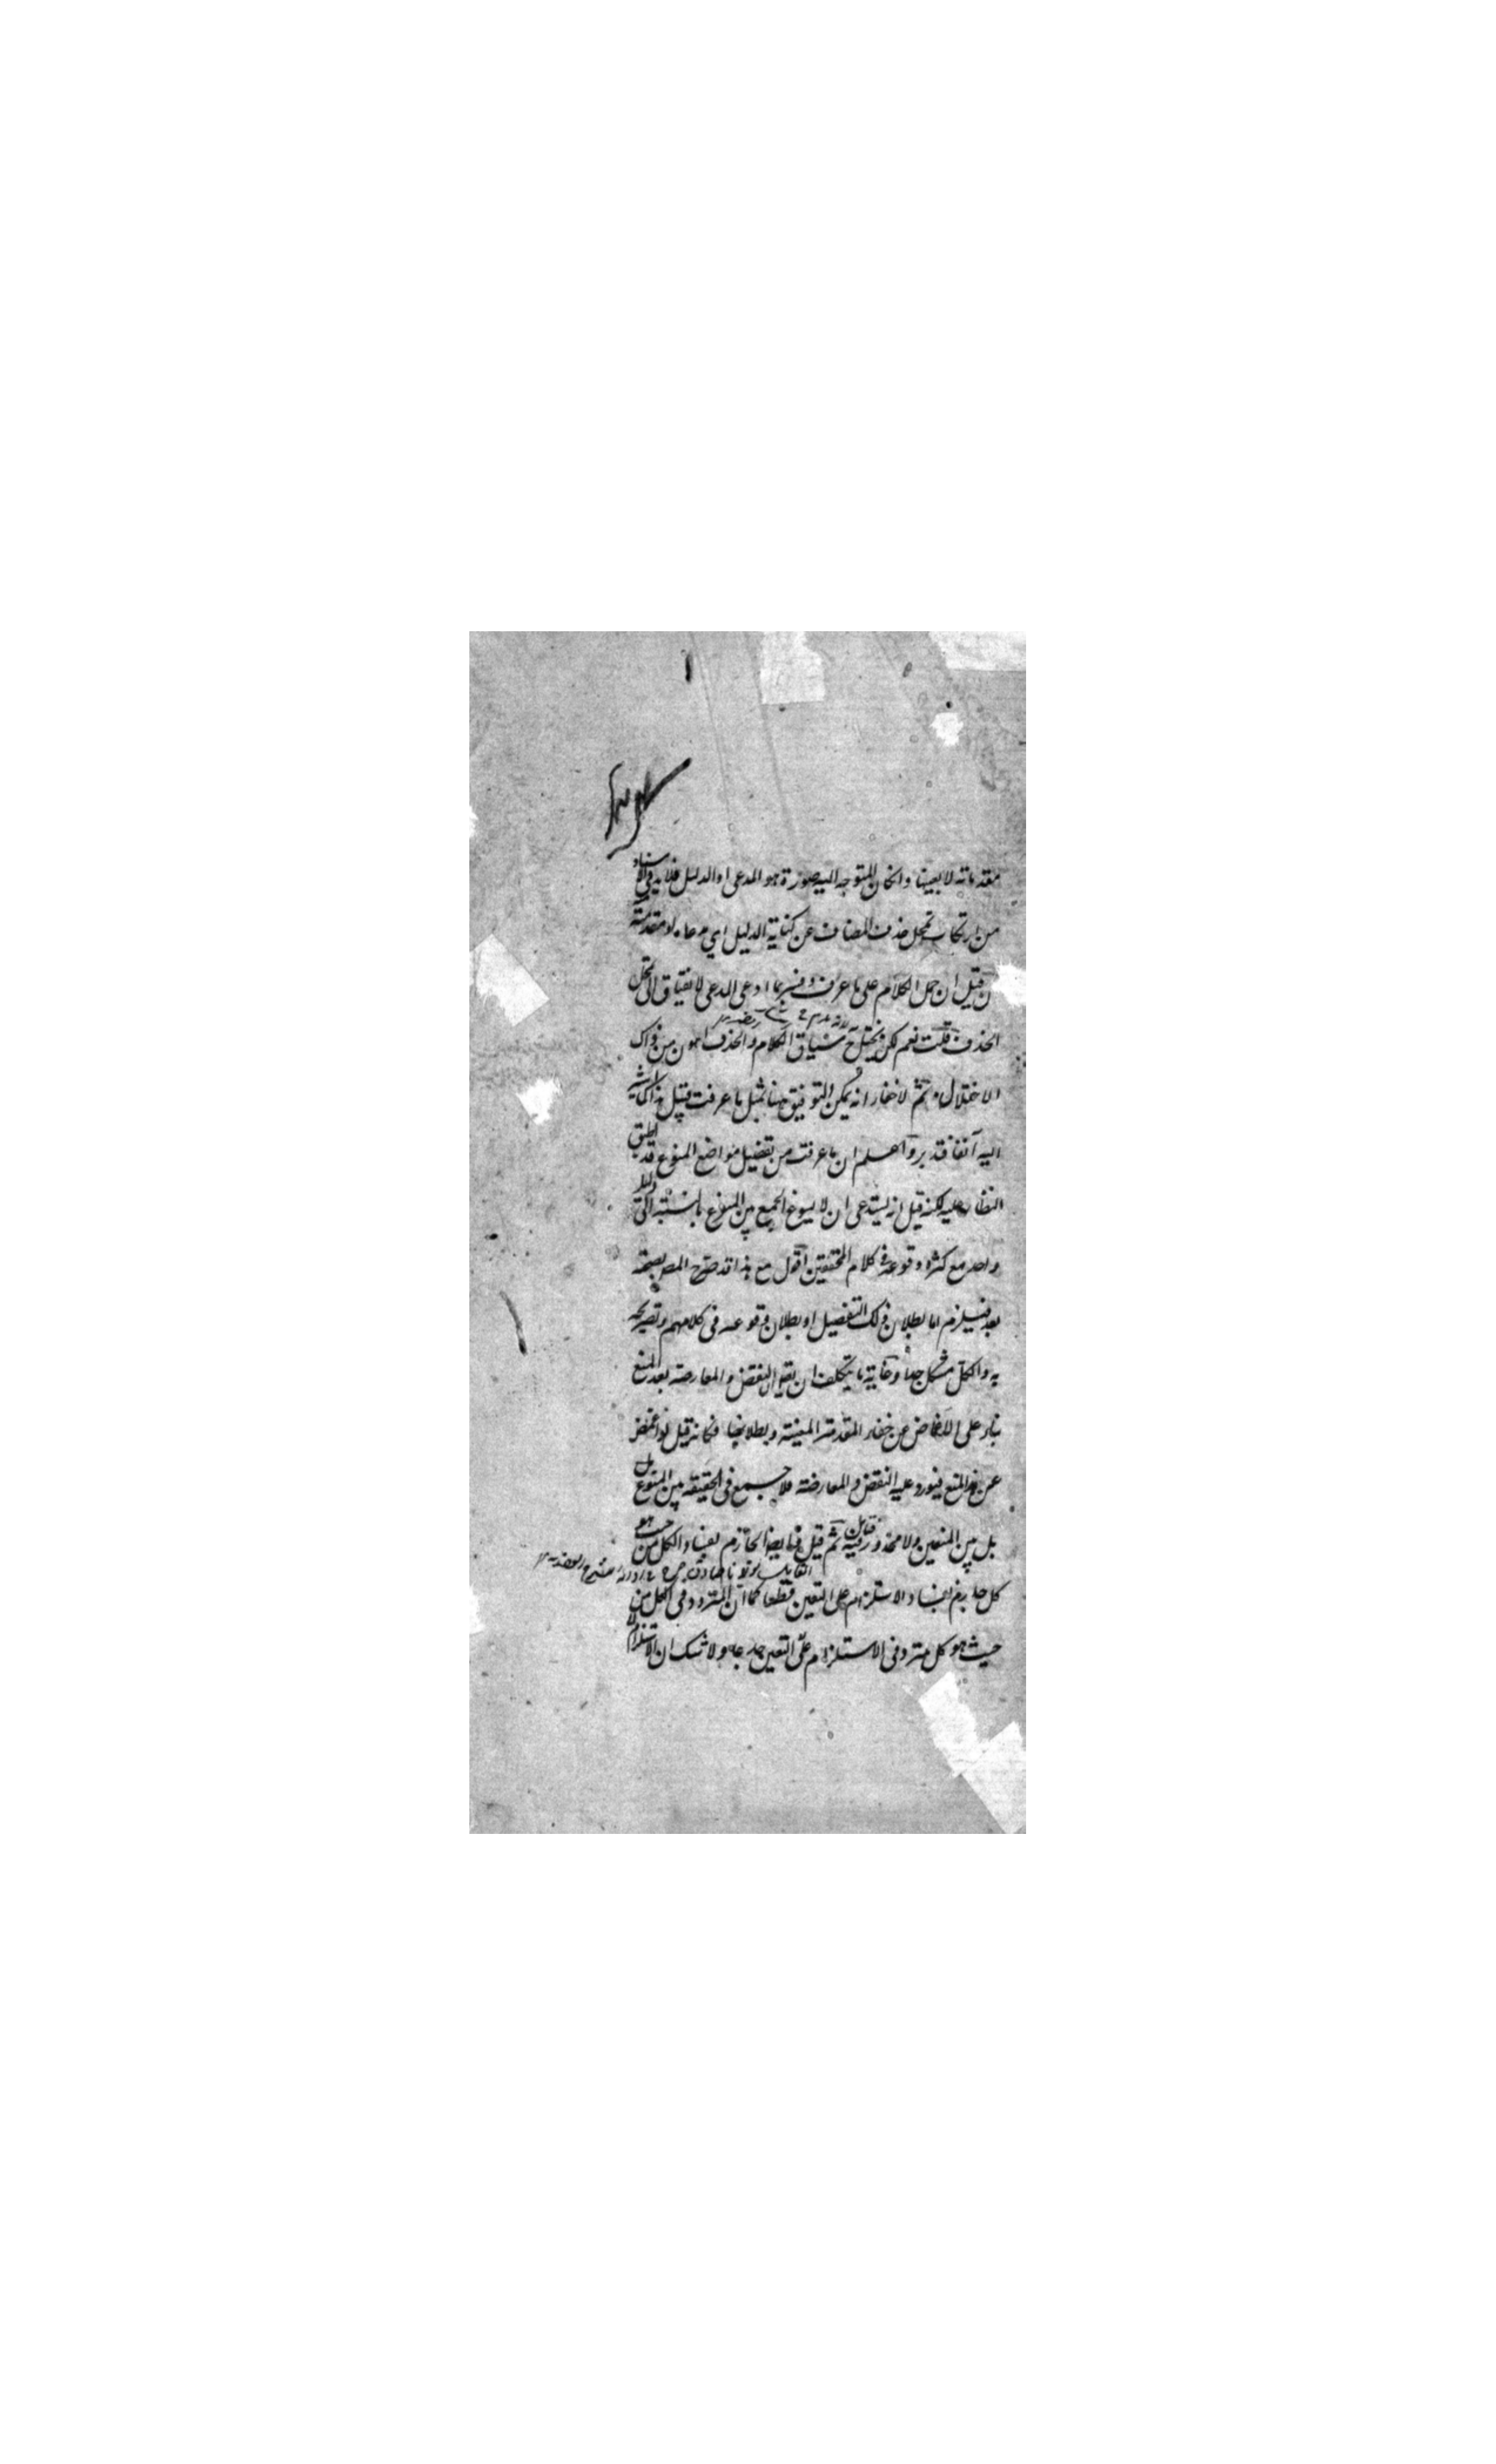 مقدماته لا بعينها وان كان المتوجه اليه صورة هو المدعى او الدليل فلا بد في الاسناد
من ارتكاب تمحل حذف المضاف عن كناية الدليل اي مدعاه او مقدمته
قيل ان حمل الكلام على ما عرف وفسر بما ادعى المدعى لا نفياق الى تمحل
الحذف قلت نعم لكن يختل ح سياق الكلام والحذف اهون من ذاك
الاختلال ثم لا خفاء انه يمكن التوفيق ههنا بمثل ما عرفت قبيل هذا كما اشير
اليه آنفا فتدبر واعلم ان ما عرفت من تفصيل مواضع المنوع قد اطبق
النظار عليه لكنه قيل انه يستدعي ان لا يسوغ الجمع بين المنوع بالنسبة الى دليل
واحد مع كثرة وقوعه في كلام المحققين اقول مع هذا قد صرح المص بصحته
بعد فيلزم اما بطلان ذلك التفصيل او بطلان وقوعه في كلامهم وتصريحه
به والكل مشكل جدا وغاية ما يتكلف ان يقال النقض والمعارضة بعد المنع
بناء على الاغماض عن خفاء المقدمة المعينة وبطلانها فكانه قيل لو اغمض
عن هذا المنع فيورد عليه النقض والمعارضة فلا جمع في الحقيقة بين المنوع
بل بين المنعين ولا محذور فيه ثم قيل فيه ايضا الجازم بفساد الكل من حيث هو
كل جازم بفساد الاستلزام على التعين قطعا كما ان المتردد في الكل من
حيث هو كل متردد في الاستلزام على التعين جدعا ولا شك ان الاستلزام